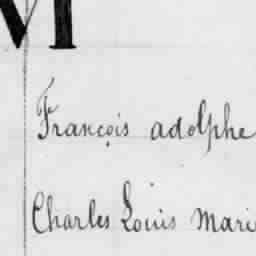 M
François adolphe
Charles Louis Mari